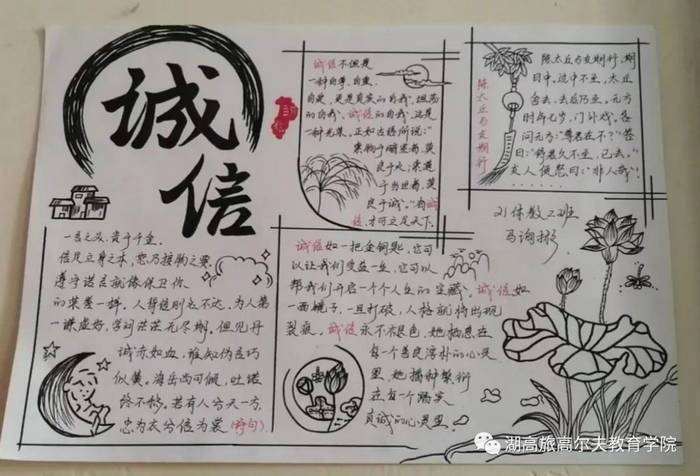 诚信
诚信不但是
一种自尊、自重、
自爱,更是真实的自我、坦荡
的自我、诚信的自我,这是
一种光荣,正如古语所说:"
集物于明者易,莫
良于诚。"有诚
信,才可立足天下。
陈太丘与友期行
陈太丘与友期行,期
日中,过中不至,太丘
舍去,去后乃至,元方
时年七岁,门外戏,客
问元方:"尊君在不?"答
曰:"待君久不至,已去。"
友人便怒曰:"非人哉!
21体教2班
一言之美,贵于千金。
信是立身之本,恕乃接物之要。
遵守诺言就像保卫你
的荣誉一样。人背信则名不达,为人第
一谦虚好,学问茫茫无尽期。但见丹
诚赤如血,谁知伪言巧
似簧。海岳尚可倾,吐诺
终不移。若有人兮天一方,
忠为衣兮信为裳(诗句)
诚信如一把金钥匙,它可
以让我们受益一生,它可以
帮我们开启一个个人生的宝藏。诚信如
一面镜子,一旦打破,人格就将出现
裂痕。诚信永不褪色,她栖息在
每一个善良淳朴的心灵
里,她播种繁衍
在每一个踏实
真诚的心灵里!
湖高旅高尔夫教育学院